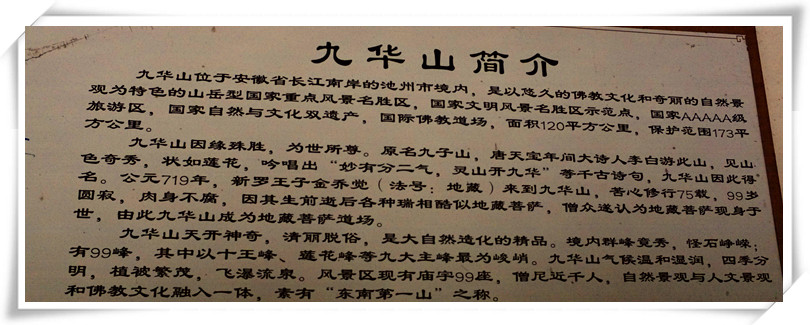 九华山简介
九华山位于安徽省长江南岸的池州市境内，是以悠久的佛教文化和奇丽的自然景
观为特色的山岳型国家重点风景名胜区，国家文明风景名胜区示范点，国家AAAAA级
旅游区，国家自然与文化双遗产，国际佛教道场，面积120平方公里，保护范围173平
方公里。
九华山因缘殊胜，为世所尊。原名九子山，唐天宝年间大诗人李白游此山，见山
色奇秀，状如莲花，吟唱出“妙有分二气，灵山开九华”等千古诗句，九华山因此得
名。公元719年，新罗王子金乔觉（法号：地藏）来到九华山，苦心修行75载，99岁
圆寂，肉身不腐，因其生前逝后各种瑞相酷似地藏菩萨，僧众遂认为地藏菩萨现身于
世，由此九华山成为地藏菩萨道场。
九华山天开神奇，清丽脱俗，是大自然造化的精品。境内群峰竞秀，怪石峥嵘；
有99峰，其中以十王峰、莲花峰等九大主峰最为峻峭。九华山气候温和湿润，四季分
明，植被繁茂，飞瀑流泉。风景区现有庙宇99座，僧尼近千人，自然景观与人文景观
和佛教文化融入一体，素有“东南第一山”之称。